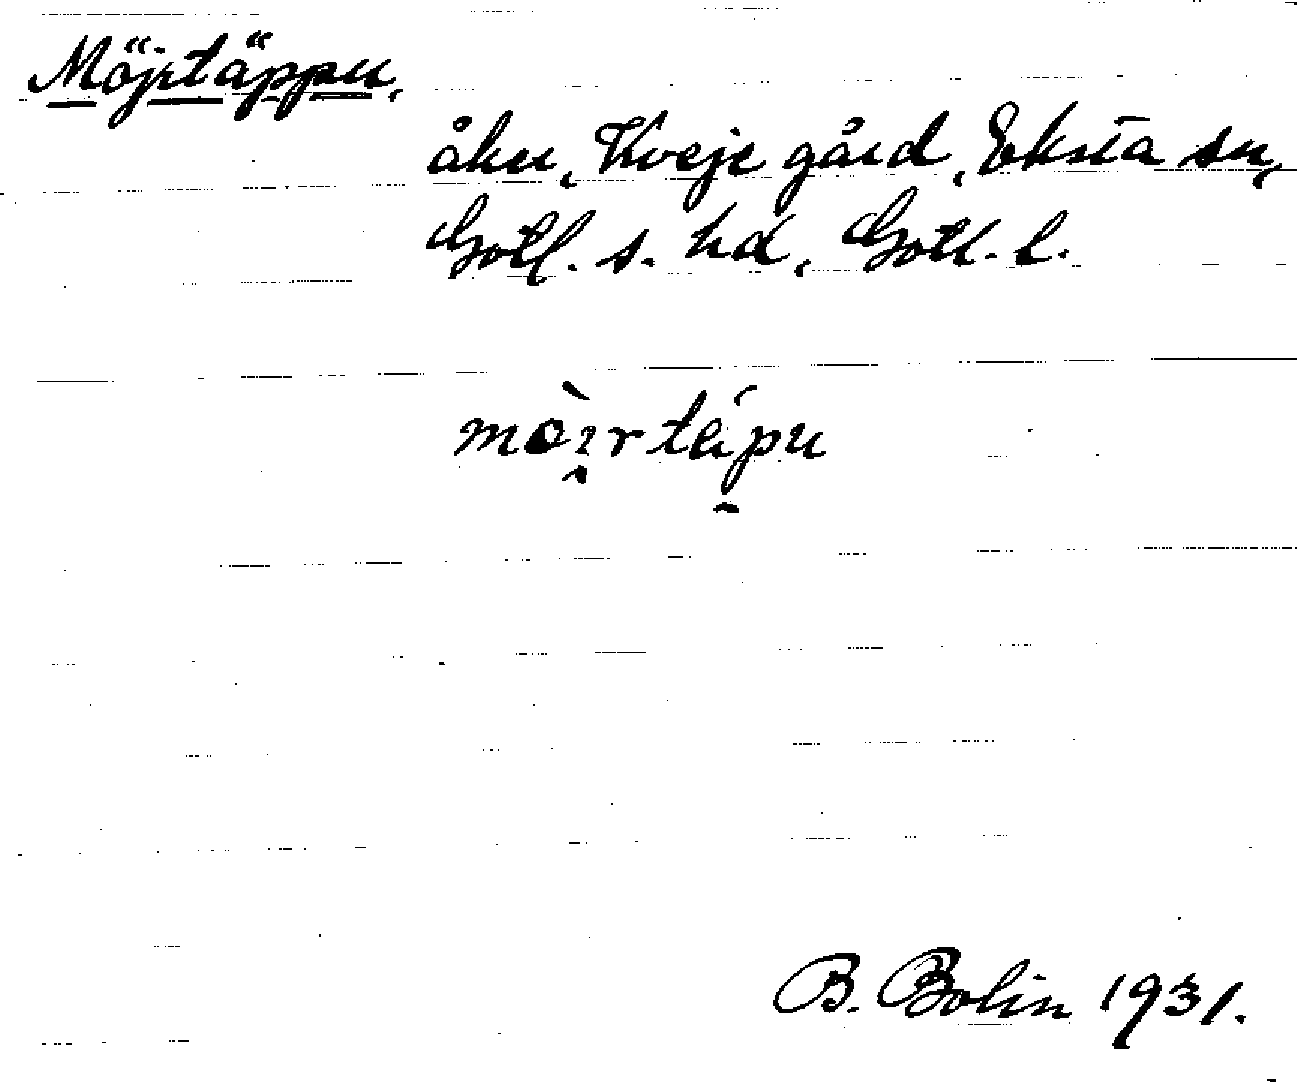 Möjrtäppu,
åker, Kveje gård, Eksta sn,
Gotl. s. hd, Gotl. l.
B. Bolin 1931.